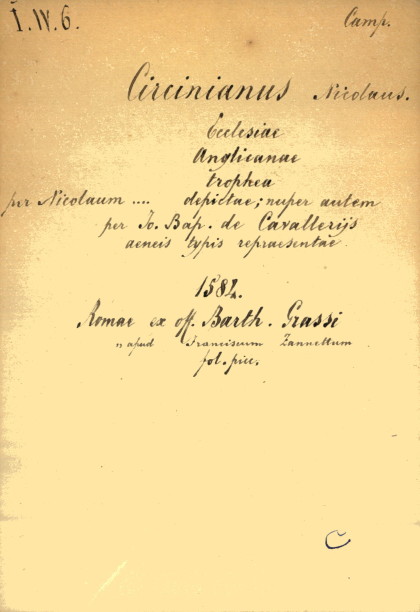 I. W. 6.
Camp.
Circinianus Nicolaus.
Ecclesiae
Anglicanae
trophea
per Nicolaum .... depictae; nuper autem
per Jo. Bap. de Cavallerijs
aeneis typis repraesentae
1584.
Romae ex off. Barth. Grassi
" apud Franciscum Zannettum
fol. picc.
C